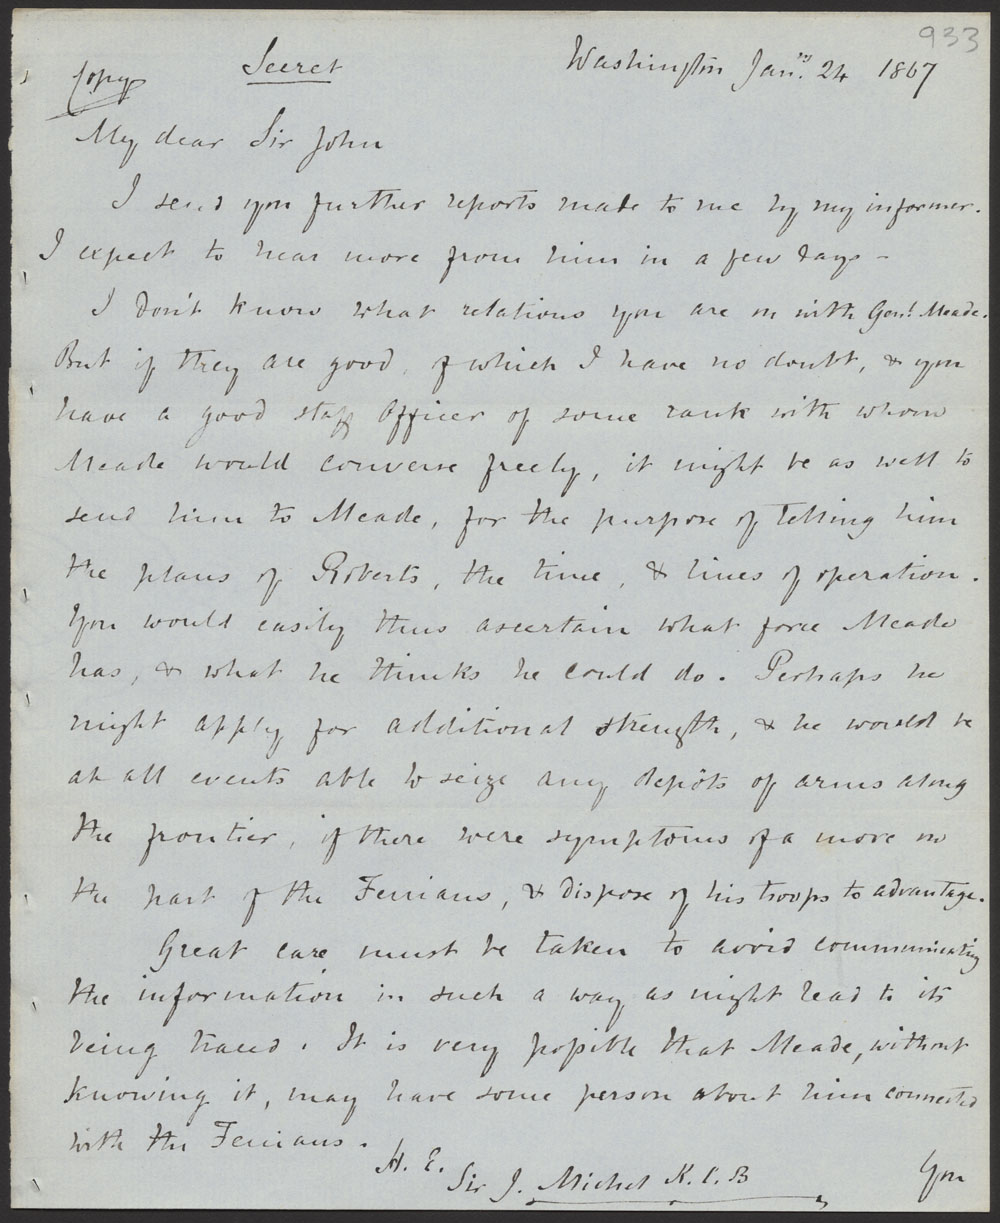 933
Copy Secret Washington Jany. 24 1867
My dear Sir John
I send you further reports made to me by my informer.
I expect to hear more from him in a few days -
I don't know what relations you are on with Genl. Meade.
But if they are good, of which I have no doubt, & you
have a good staff officer of some rank with whom
Meade would converse freely, it might be as well to
send him to Meade, for the purpose of telling him
the plans of Roberts, the time, & lines of operation.
You would easily thus ascertain what force Meade
has, & what he thinks he could do. Perhaps he
might apply for additional strength, & he would be
at all events able to seize any depôts of arms along
the frontier, if there were symptoms of a move on
the part of the Fenians, & dispose of his troops to advantage.
Great care must be taken to avoid communicating
the information in such a way as might lead to its
being traced. It is very possible that Meade, without
knowing it, may have some person about him connected
with the Fenians.
H. E.
Sir J. Michel K.C.B
You